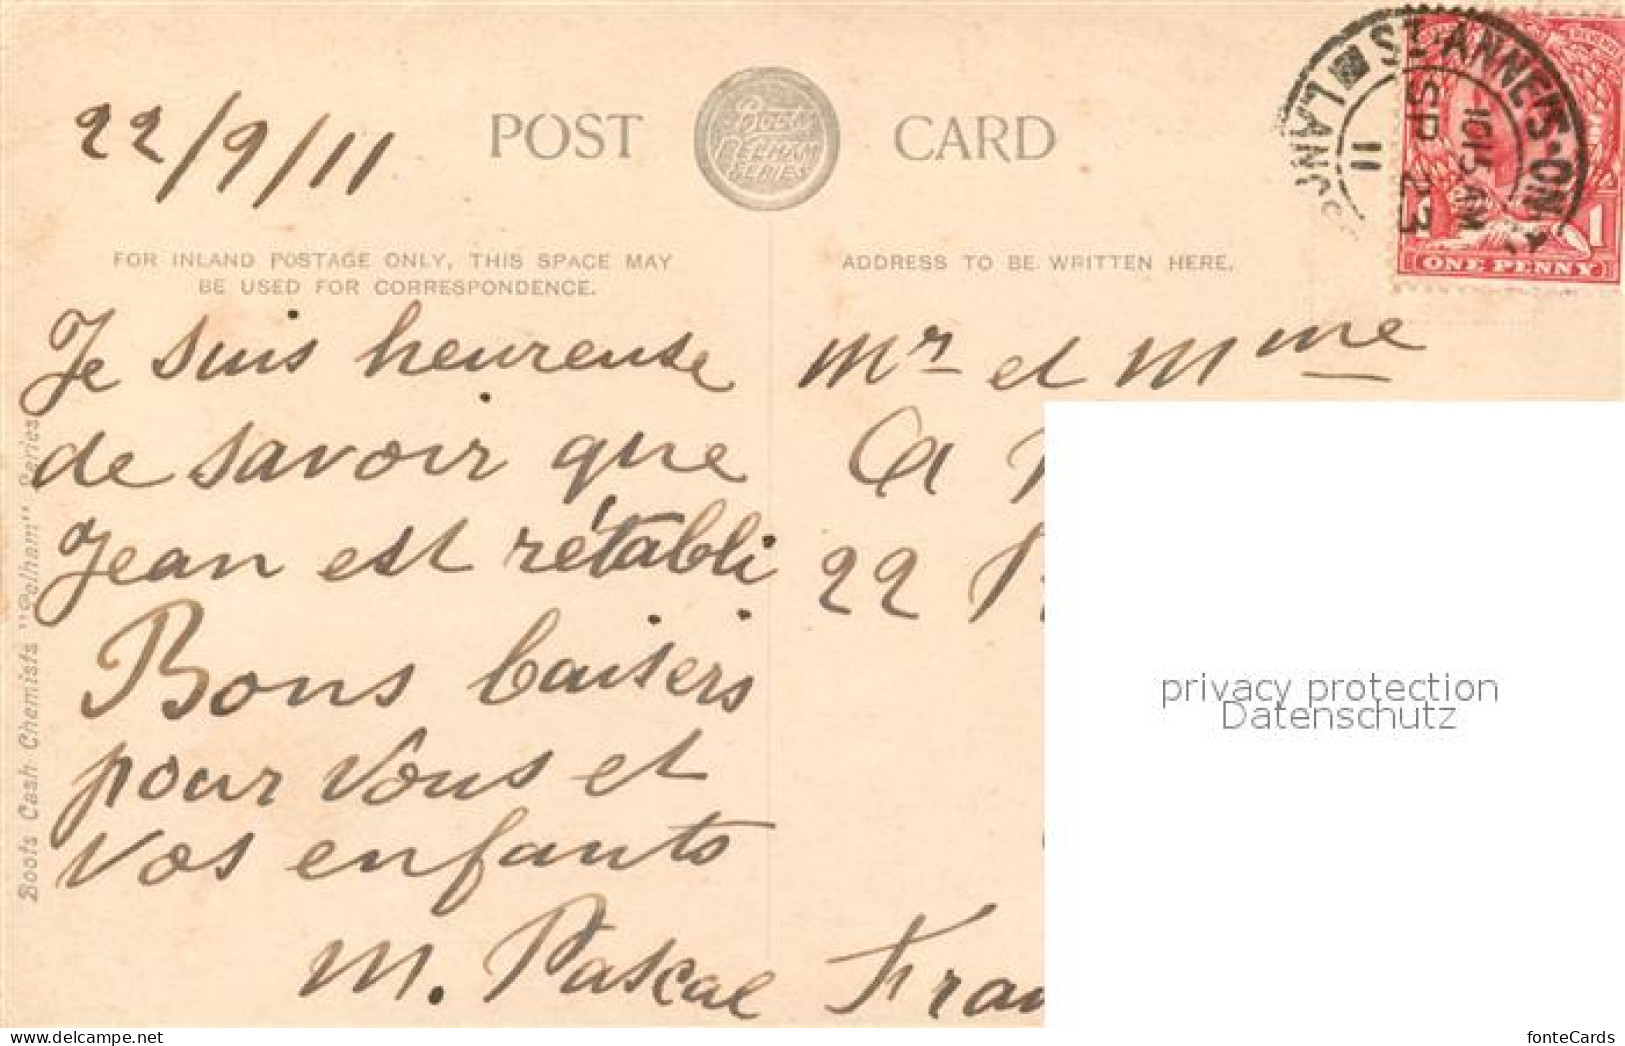 22/9/11
POST CARD
Boots
PELHAM
SERIES
ST. ANNE'S-ON
10 15 AM
SP 23
11
ONE PENNY
1
FOR INLAND POSTAGE ONLY, THIS SPACE MAY
BE USED FOR CORRESPONDENCE.
ADDRESS TO BE WRITTEN HERE.
Je suis heureuse
de savoir que
Jean est rétabli
Bons baisers
pour vous et
vos enfants
M. Pascal
Mr et Mme
22
Fran
Boots Cash Chemists "Pelham" Series
privacy protection
Datenschutz
fonteCards